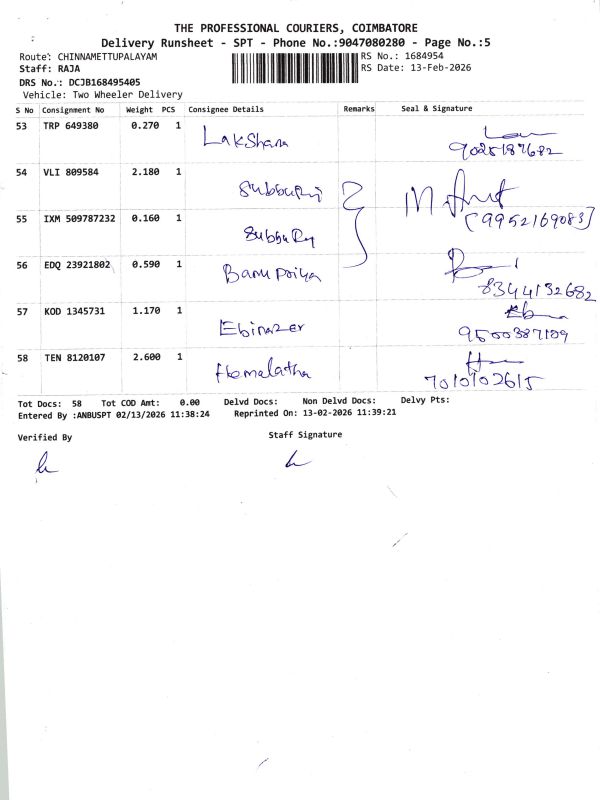 THE PROFESSIONAL COURIERS, COIMBATORE
Delivery Runsheet - SPT - Phone No.:9047080280 - Page No.:5
Route: CHINNAMETTUPALAYAM
RS No.: 1684954
Staff: RAJA
RS Date: 13-Feb-2026
DRS No.: DCJB168495405
Vehicle: Two Wheeler Delivery
S No Consignment No Weight PCS Consignee Details Remarks Seal & Signature
53 TRP 649380 0.270 1 Lakshana
9025187682
54 VLI 809584 2.180 1 Subburaj
[9952169083]
55 IXM 509787232 0.160 1 Subburaj
56 EDQ 23921802 0.590 1 Banupriya
8344132682
57 KOD 1345731 1.170 1 Ebinazer
9500387109
58 TEN 8120107 2.600 1 Hemalatha
7010102615
Tot Docs: 58 Tot COD Amt: 0.00 Delvd Docs: Non Delvd Docs: Delvy Pts:
Entered By :ANBUSPT 02/13/2026 11:38:24 Reprinted On: 13-02-2026 11:39:21
Verified By Staff Signature